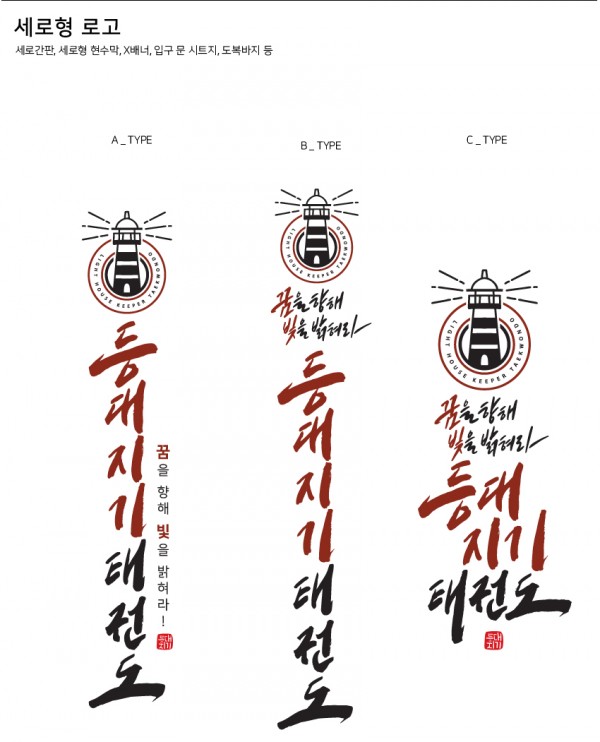 세로형 로고
세로간판, 세로형 현수막, X배너, 입구 문 시트지, 도복바지 등
A_TYPE
LIGHT HOUSE KEEPER TAEKWONDO
등대지기태권도
꿈을 향해 빛을 밝혀라!
등대
지기
B_TYPE
LIGHT HOUSE KEEPER TAEKWONDO
꿈을향해
빛을밝혀라
등대지기태권도
C_TYPE
LIGHT HOUSE KEEPER TAEKWONDO
꿈을향해
빛을밝혀라
등대
지기
태권도
등대
지기